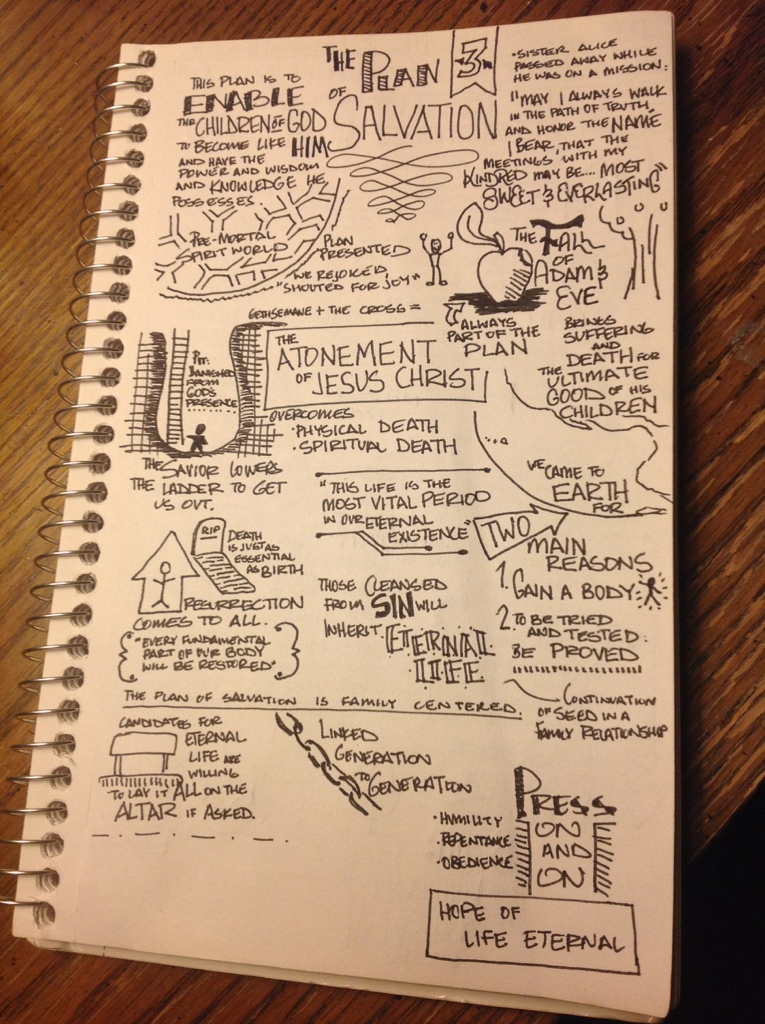 THE PLAN
OF SALVATION
3
THIS PLAN IS TO
ENABLE
THE CHILDREN OF GOD
TO BECOME LIKE HIM
AND HAVE THE
POWER AND WISDOM
AND KNOWLEDGE HE
POSSESSES.
• SISTER ALICE
PASSED AWAY WHILE
HE WAS ON A MISSION:
"MAY I ALWAYS WALK
IN THE PATH OF TRUTH,
AND HONOR THE NAME
I BEAR, THAT THE
MEETINGS WITH MY
KINDRED MAY BE... MOST
SWEET & EVERLASTING"
PRE-MORTAL
SPIRIT WORLD
PLAN
PRESENTED
WE REJOICED
"SHOUTED FOR JOY"
THE FALL
OF
ADAM &
EVE
ALWAYS
PART OF THE
PLAN
BRINGS
SUFFERING
AND
DEATH FOR
THE ULTIMATE
GOOD OF HIS
CHILDREN
GETHSEMANE + THE CROSS =
THE
ATONEMENT
OF JESUS CHRIST
OVERCOMES
• PHYSICAL DEATH
• SPIRITUAL DEATH
PIT:
BANISHED
FROM
GOD'S
PRESENCE
......
THE SAVIOR LOWERS
THE LADDER TO GET
US OUT.
"THIS LIFE IS THE
MOST VITAL PERIOD
IN OUR ETERNAL
EXISTENCE"
...
WE CAME TO
EARTH
FOR
TWO
MAIN
REASONS
1. GAIN A BODY
2. TO BE TRIED
AND TESTED:
BE PROVED
RIP
DEATH
IS JUST AS
ESSENTIAL
AS BIRTH
RESURRECTION
COMES TO ALL.
"EVERY FUNDAMENTAL
PART OF OUR BODY
WILL BE RESTORED"
THOSE CLEANSED
FROM SIN WILL
INHERIT ETERNAL
LIFE
THE PLAN OF SALVATION IS FAMILY CENTERED.
CONTINUATION
OF SEED IN A
FAMILY RELATIONSHIP
CANDIDATES FOR
ETERNAL
LIFE ARE
WILLING
TO LAY IT ALL ON THE
ALTAR IF ASKED.
LINKED
GENERATION
TO GENERATION
PRESS
ON
AND
ON
• HUMILITY
• REPENTANCE
• OBEDIENCE
HOPE OF
LIFE ETERNAL